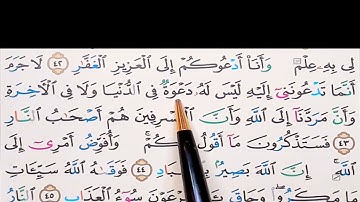 لِى بِهِۦ عِلْمٌ وَأَنَا۠ أَدْعُوكُمْ إِلَى ٱلْعَزِيزِ ٱلْغَفَّـٰرِ ٤٢ لَا جَرَمَ
أَنَّمَا تَدْعُونَنِىٓ إِلَيْهِ لَيْسَ لَهُۥ دَعْوَةٌ فِى ٱلدُّنْيَا وَلَا فِى ٱلْـَٔاخِرَةِ
وَأَنَّ مَرَدَّنَآ إِلَى ٱللَّهِ وَأَنَّ ٱلْمُسْرِفِينَ هُمْ أَصْحَـٰبُ ٱلنَّارِ
٤٣ فَسَتَذْكُرُونَ مَآ أَقُولُ لَكُمْ ۚ وَأُفَوِّضُ أَمْرِىٓ إِلَى
ٱللَّهِ ۚ إِنَّ ٱللَّهَ بَصِيرٌۢ ٤٤ فَوَقَىٰهُ ٱللَّهُ سَيِّـَٔاتِ
مَا مَكَرُوا۟ ۖ وَحَاقَ سُوٓءُ ٱلْعَذَابِ ٤٥ ٱلنَّارُ